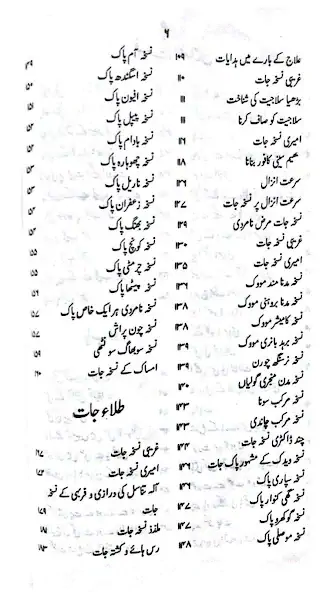 ۶
علاج کے بارے میں ہدایات ۱۰۹
غریبی نسخہ جات ۱۱۰
بڑھیا سلاجیت کی شناخت ۱۱۱
سلاجیت کو صاف کرنا ۱۱۱
امیری نسخہ جات ۱۱۶
بھیم سینی کافور بنانا ۱۱۸
سرعت انزال ۱۲۶
سرعت انزال پر نسخہ جات ۱۲۷
نسخہ جات مرض نامردی ۱۲۹
غریبی نسخہ جات ۱۳۰
امیری نسخہ جات ۱۳۵
نسخہ مدنا نند مودک ۱۳۶
نسخہ مدنا مودک ۱۳۸
نسخہ کامیشر مودک ۱۳۸
نسخہ برہد بانری مودک ۱۳۹
نسخہ نرسنگھ چورن ۱۳۹
نسخہ مدن منجری گولیاں ۱۴۰
نسخہ مرکب سونا ۱۴۳
نسخہ مرکب چاندی ۱۴۳
چند ڈاکٹری نسخہ جات ۱۴۴
نسخہ ویدک کے مشہور پاک جات ۱۴۶
نسخہ سپاری پاک ۱۴۶
نسخہ گھی کنوار پاک ۱۴۷
نسخہ گوکھرو پاک ۱۴۷
نسخہ موصلی پاک ۱۴۸
نسخہ آم پاک ۱۴۹
نسخہ اسگندھ پاک ۱۵۰
نسخہ افیون پاک ۱۵۱
نسخہ پیپل پاک
نسخہ بادام پاک
نسخہ چھوہارہ پاک
نسخہ ناریل پاک
نسخہ زعفران پاک
نسخہ بھنگ پاک
نسخہ کونچ پاک ۱۵۵
نسخہ چرمٹی پاک ۱۵۵
نسخہ پیٹھا پاک ۱۵۶
نسخہ نامردی ہر ایک خاص پاک ۱۵۷
نسخہ چون پراش ۱۵۷
نسخہ سوبھاگ سونٹھی ۱۵۹
امساک کے نسخہ جات ۱۶۰
طلاء جات
غریبی نسخہ جات ۱۶۷
امیری نسخہ جات ۱۷۳
آلہ تناسل کی درازی و فربہی کے نسخہ
جات ۱۷۹
ملذذ نسخہ جات ۱۸۱
رس ہائے و کشتہ جات ۱۸۳